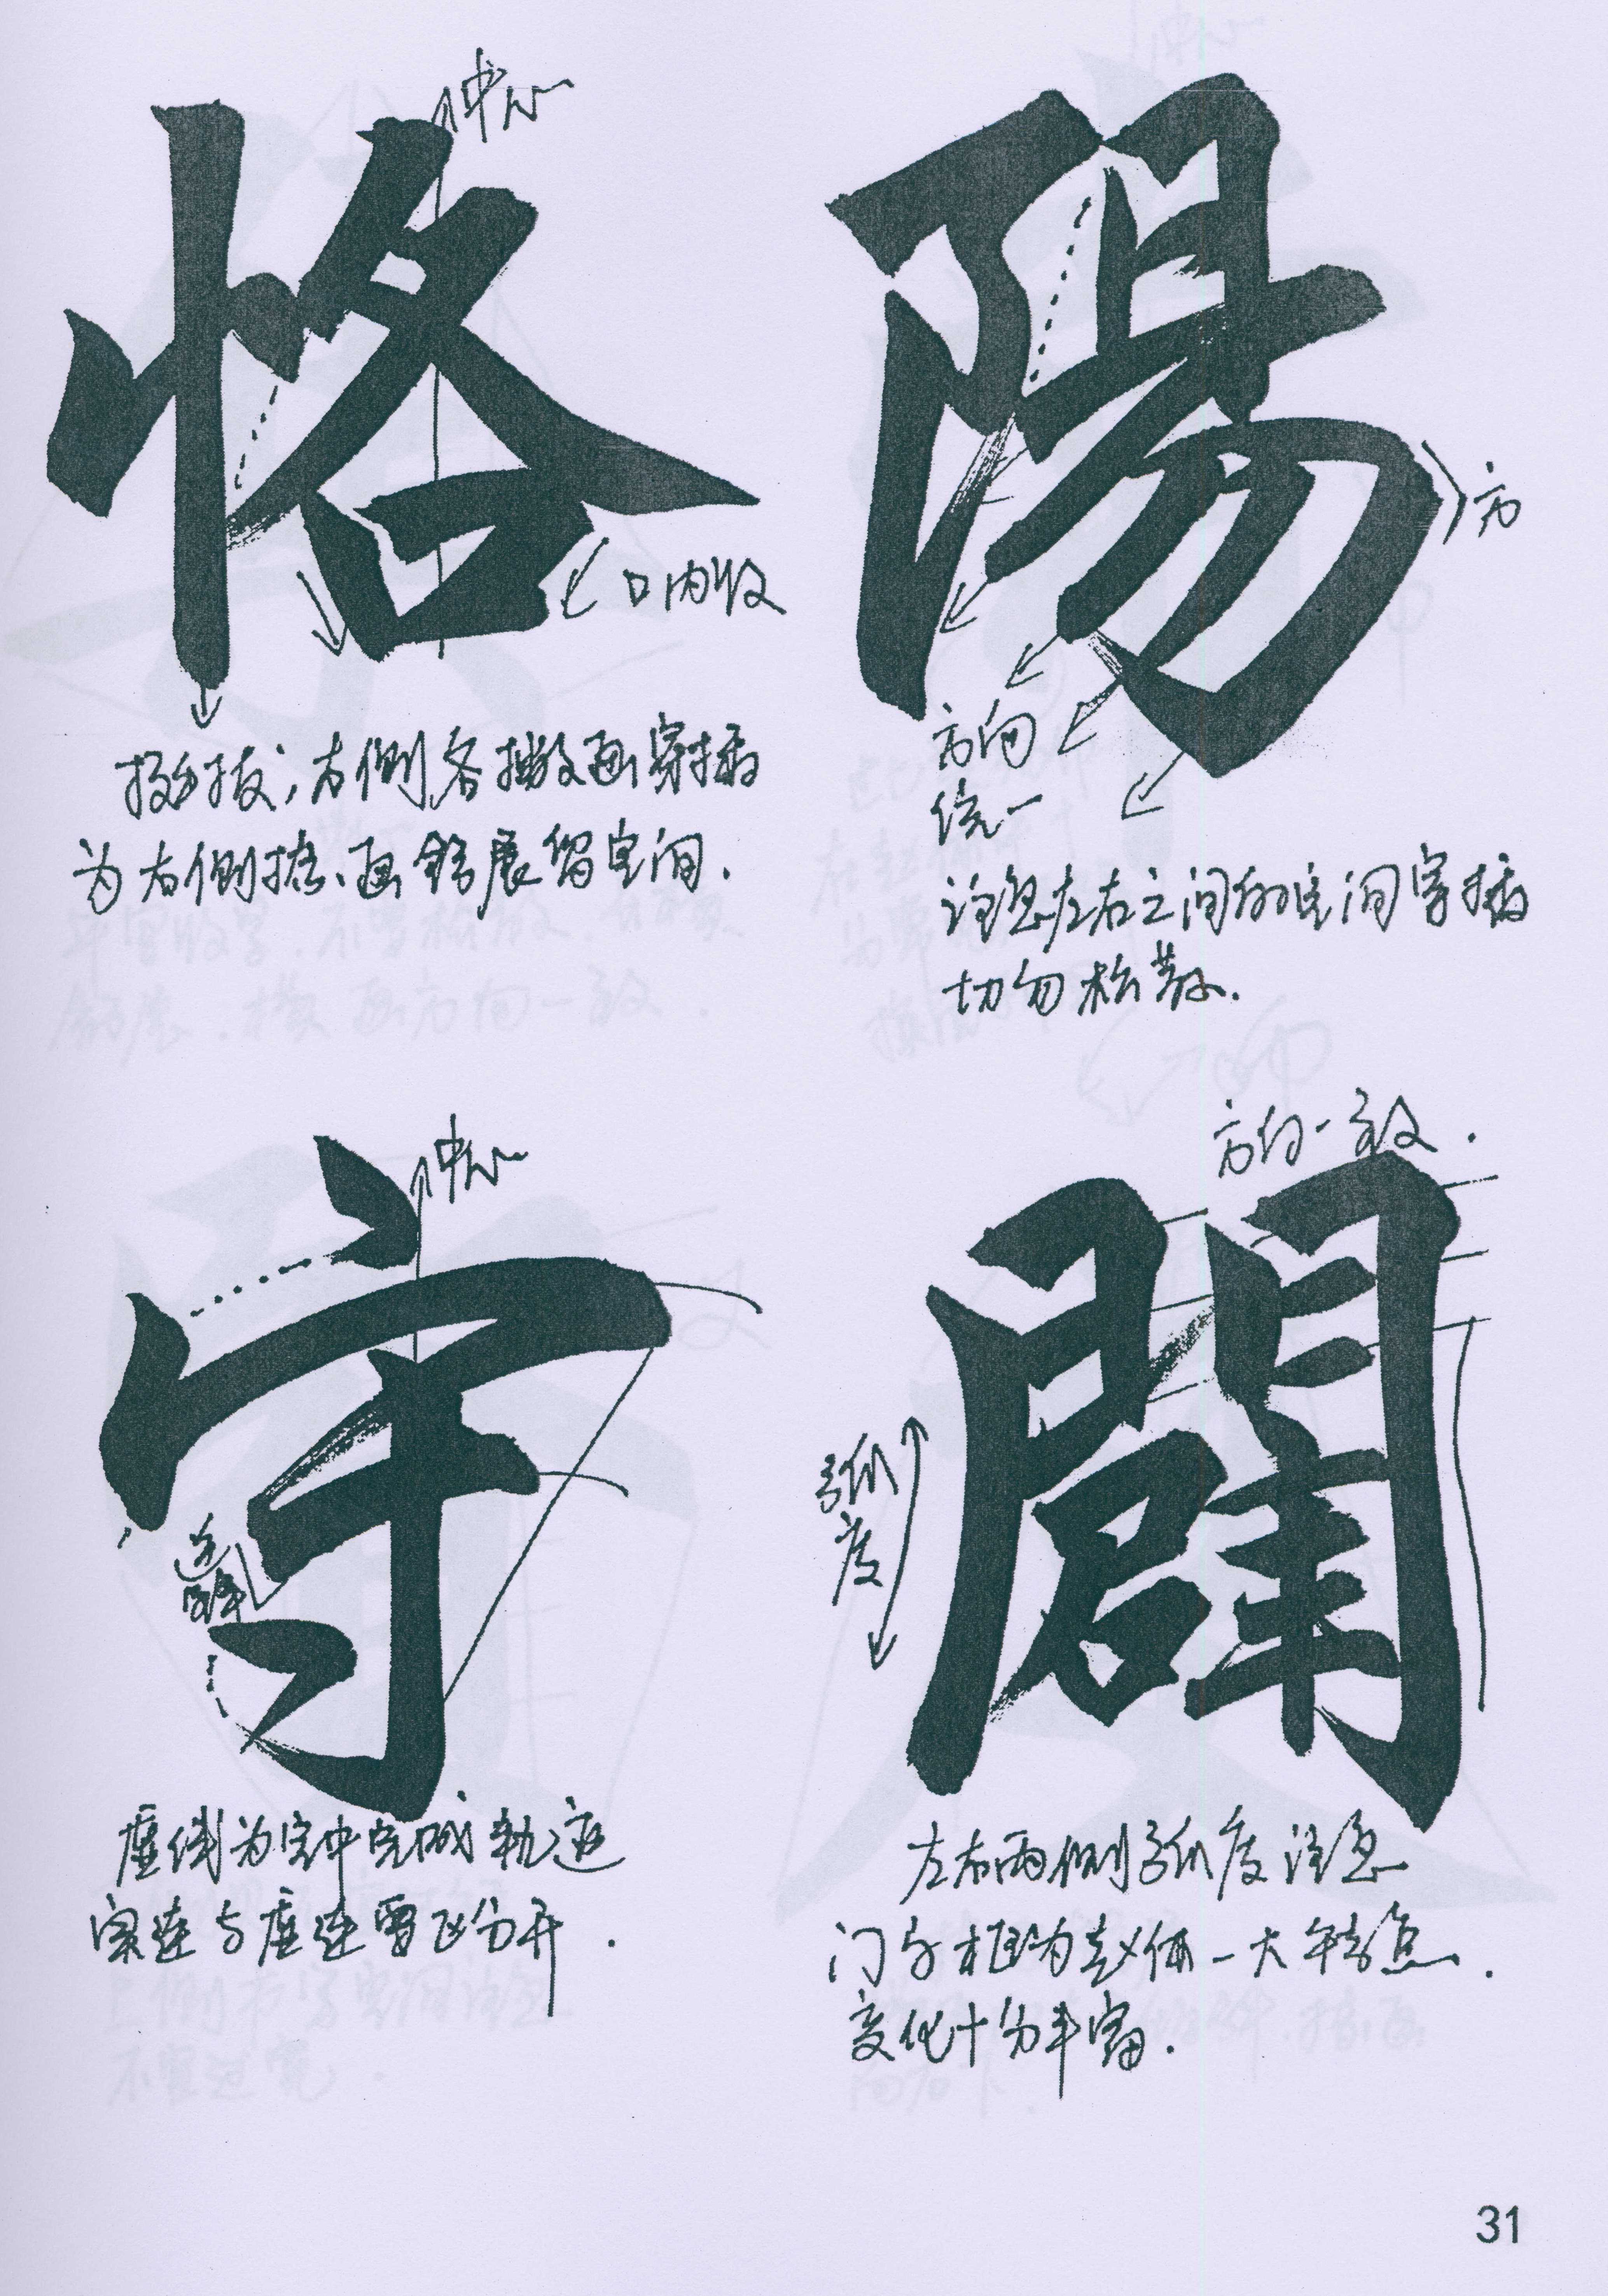 恪
中心
口内收
挺拔，右侧各撇画穿插
为右侧捺画舒展留空间.
陽
方
方向
统一
注意左右之间的空间穿插
切勿松散.
守
中心
逆
锋
虚线为空中完成轨迹
实连与虚连要区分开.
闢
方向一致.
弧
度
左右两侧弧度注意
门字框为赵体一大特点.
变化十分丰富.
31